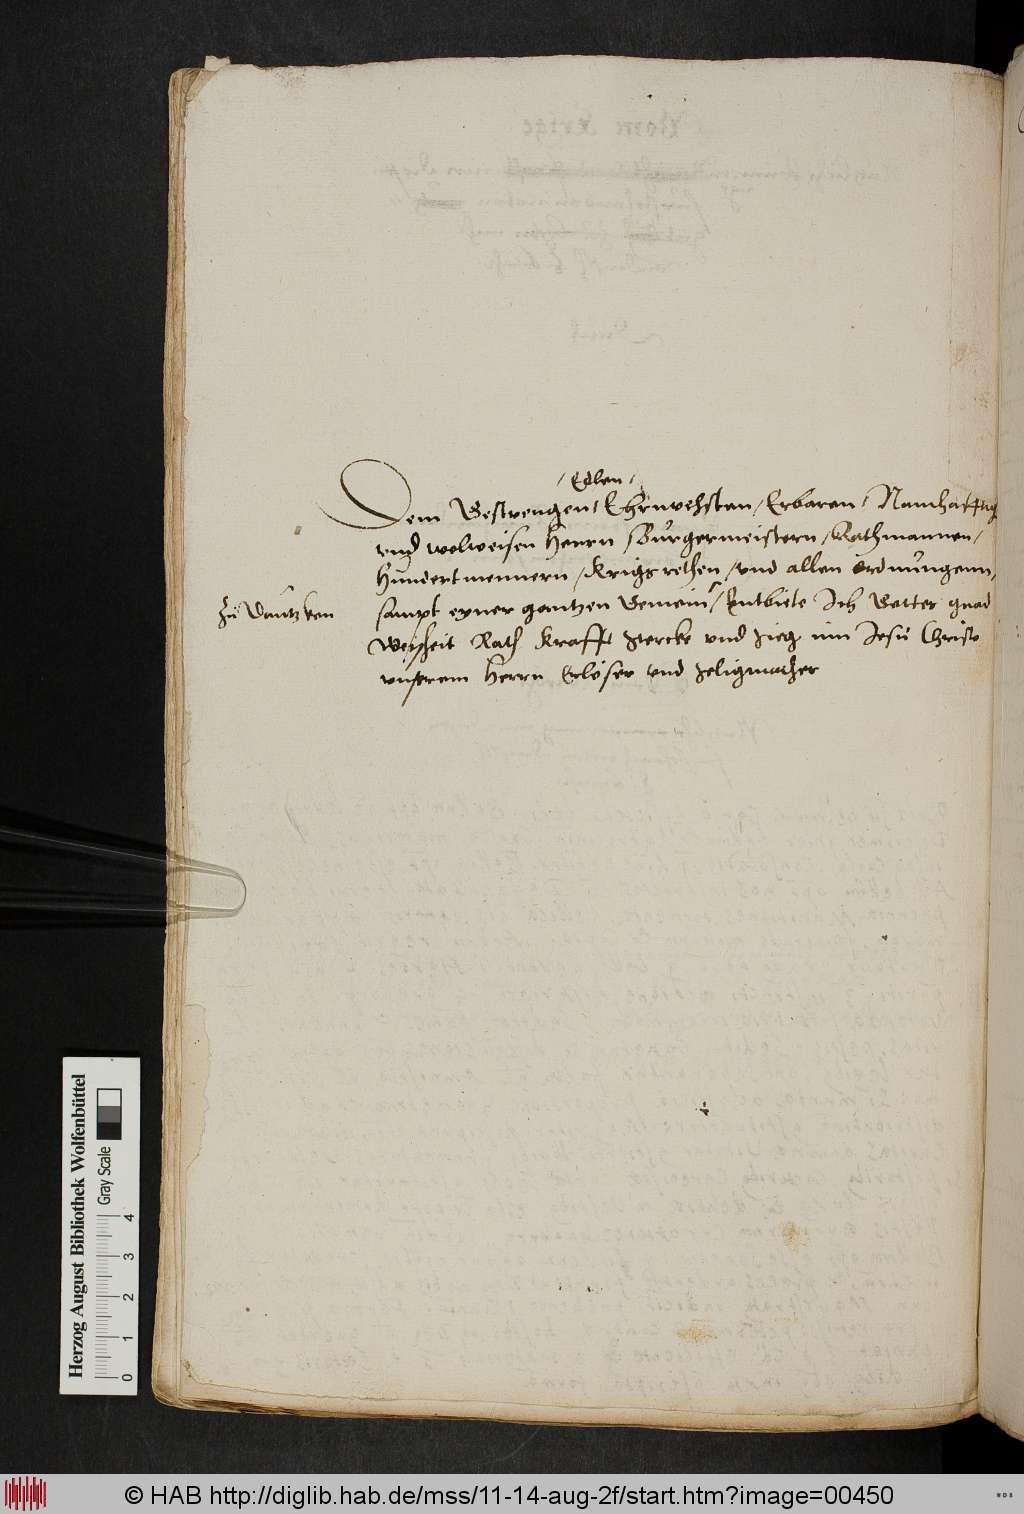 / Edlen /
Dem Gestrengen / Ehrnvehsten / Erbaren / Namhafftig
vnd wolweisen Herrn / Bürgermeistern / Rathmannen /
Hundertmennern / Krigsrethen / vnd allen ordnungenn,
Zu Dantzken
sampt eyner gantzen Gemein / Entbiete Ich Gottes gnad
Weisheit Rath Krafft stercke vnd sieg inn Jesu Christo
vnserem Herrn Erlöser vnd seligmacher
Herzog August Bibliothek Wolfenbüttel
Gray Scale
0 1 2 3 4
© HAB http://diglib.hab.de/mss/11-14-aug-2f/start.htm?image=00450